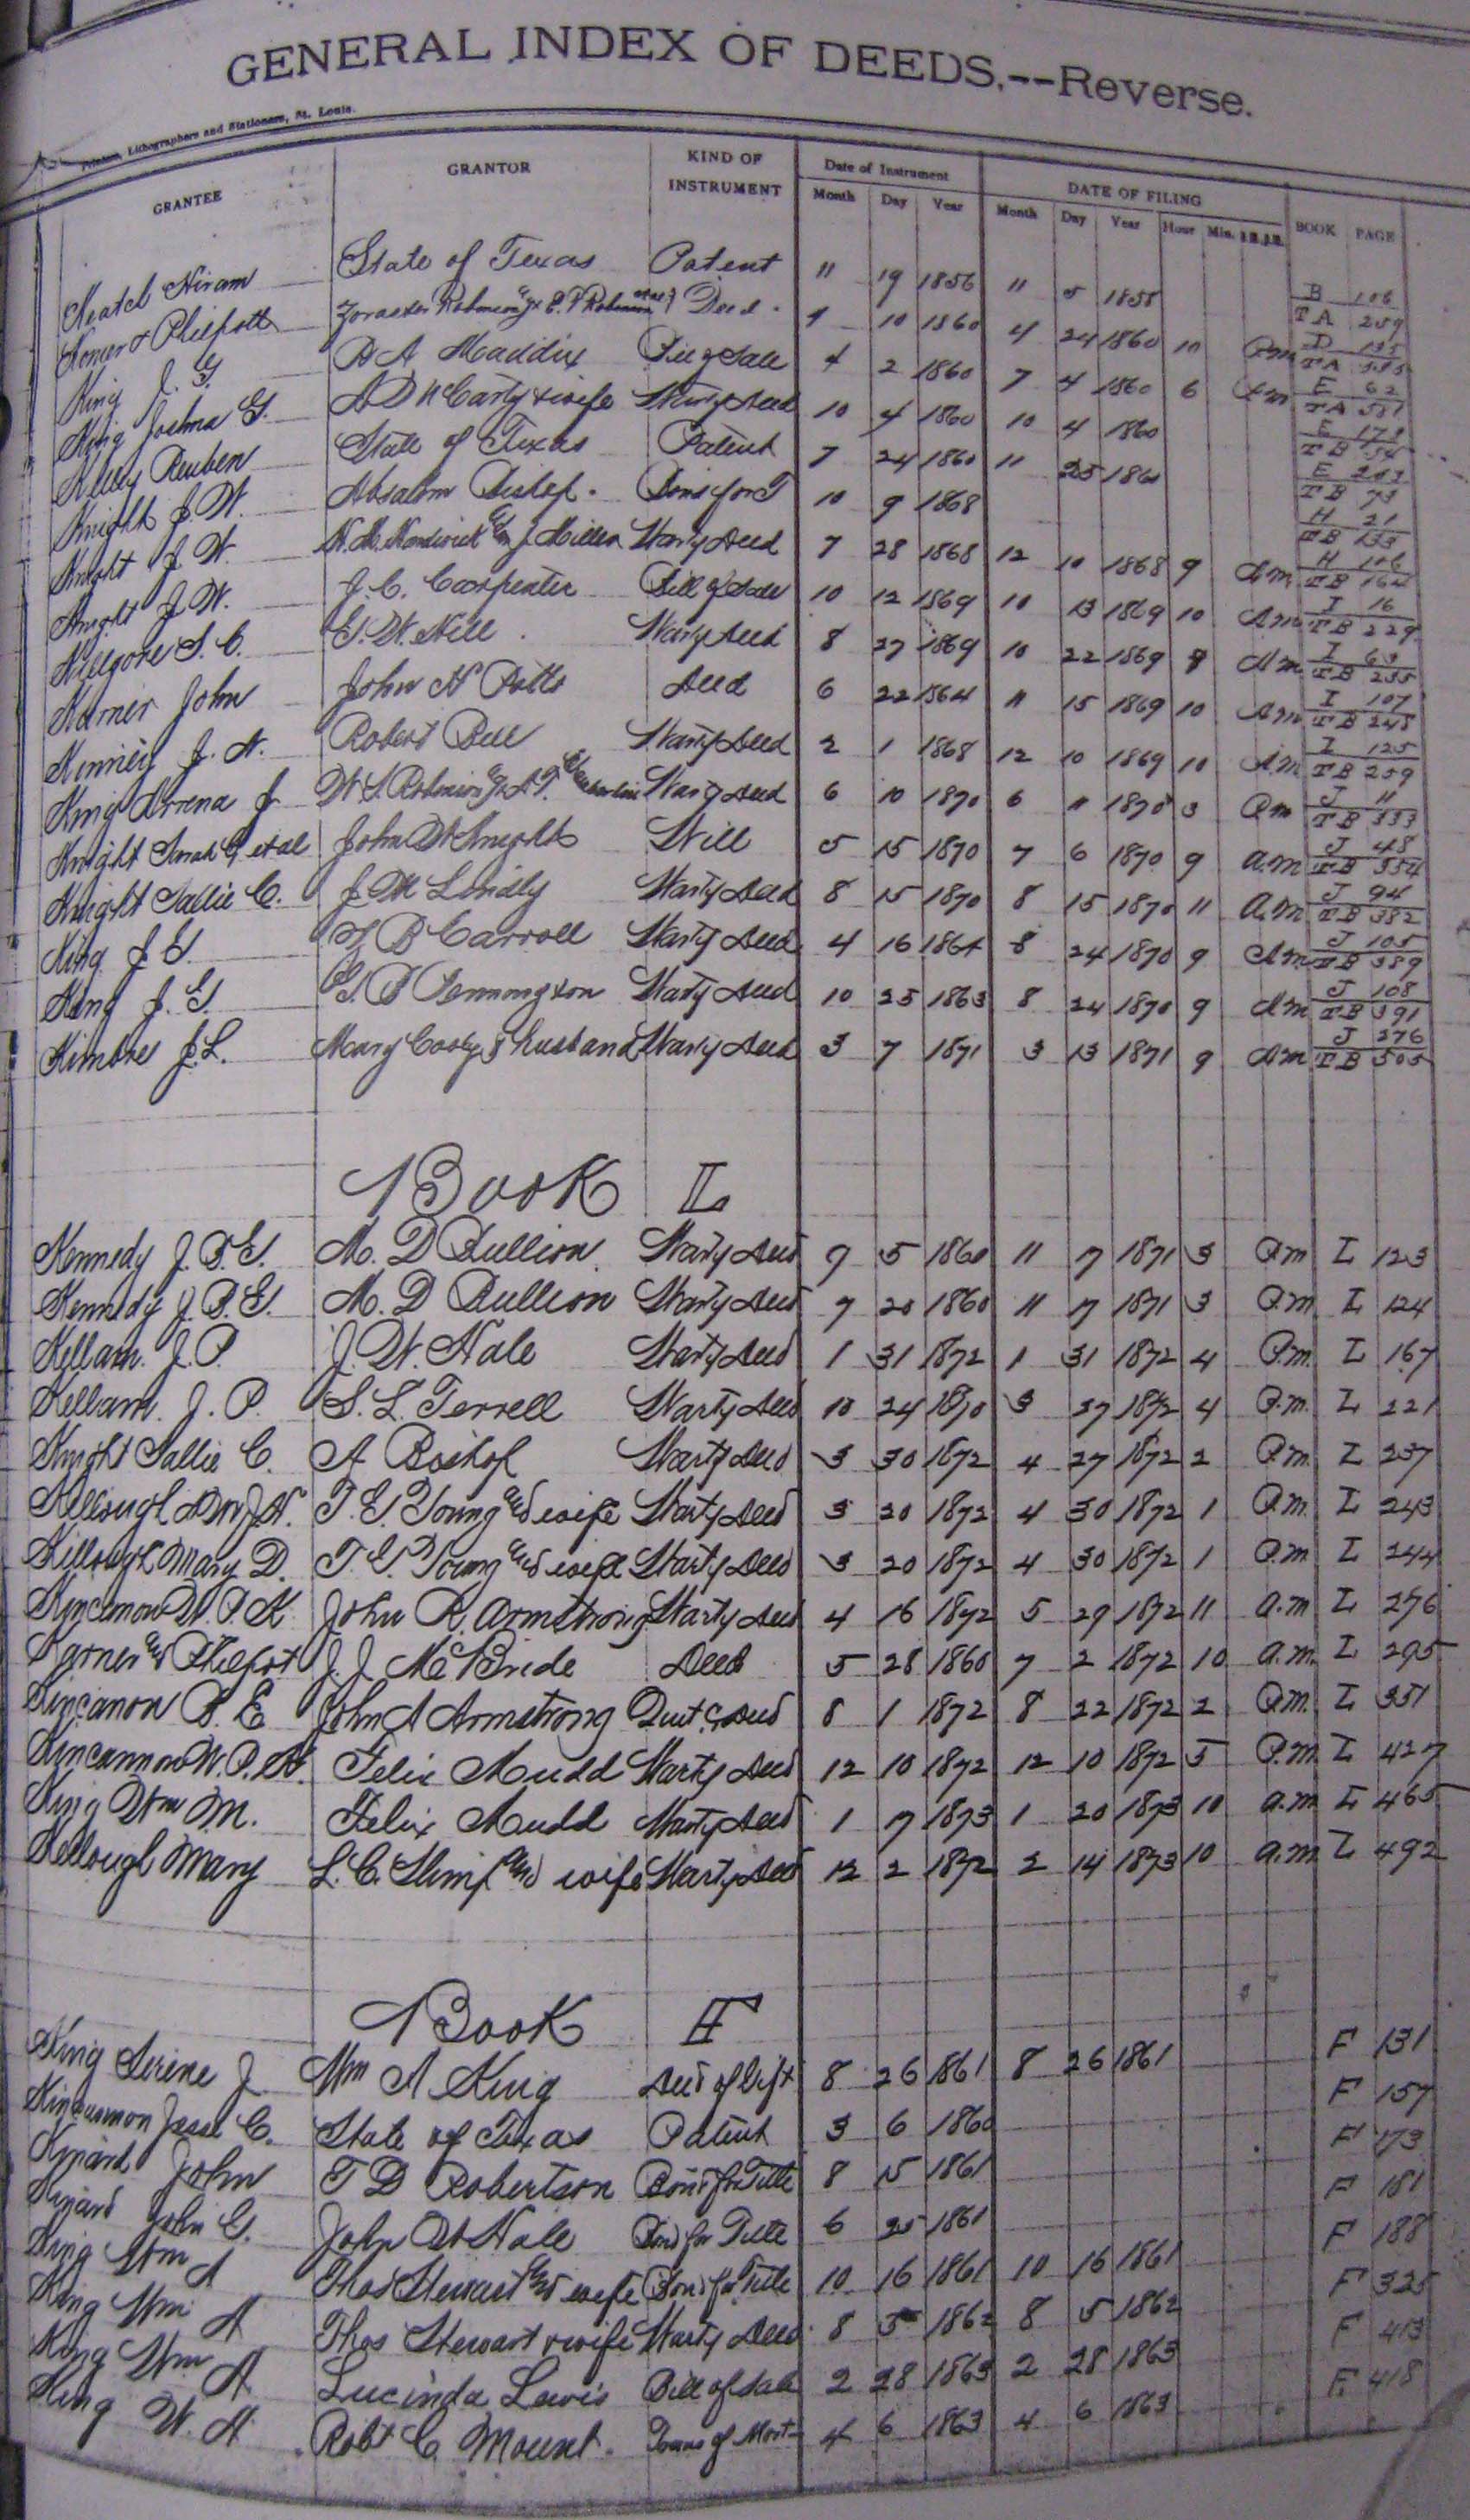 GENERAL INDEX OF DEEDS.--Reverse.
Lithographers and Stationers, St. Louis.
GRANTEE GRANTOR KIND OF INSTRUMENT Date of Instrument Month Day Year DATE OF FILING Month Day Year Hour Min. BOOK PAGE
Hiram State of Texas Patent 11 19 1856 11 5 1858 B 106 TA 259
Deed 10 1860 4 24 1860 10 Pm D
King J. G. Maddix Bill of Sale 4 2 1860 7 4 1860 6 E 62 TA
King Joshua G. A D McCarty & wife Warty Deed 10 4 1860 10 4 1860 E TB
Kelley Reuben State of Texas Patent 7 24 1860 11 25 1860 E TB 73
Knight J. W. Absalom Bishop Bond for T 10 9 1868 H 21 TB 133
Knight J. W. J. Miller Warty Deed 7 28 1868 12 10 1868 9 Am H 106 TB
Knight J. W. J. C. Carpenter Bill of Sale 10 12 1869 10 13 1869 10 Am I 16 TB 229
Killgore S. C. G. W. Hill Warty Deed 8 27 1869 10 22 1869 Am I 63 TB 255
Karner John John H Potts Deed 6 22 1864 11 15 1869 10 Am I 107 TB
Kenney J. N. Robert Bell Warty Deed 2 1 1868 12 10 1869 10 Am I 125 TB 259
King J. W. S. Robinson Warty Deed 6 10 1870 6 11 1870 3 Pm J 11 TB 333
Knight Sarah G et al John W Knight Will 5 15 1870 7 6 1870 9 a.m J 48 TB 354
Knight Sallie C. J. M Lindly Warty Deed 8 15 1870 8 15 1870 11 a.m J 94 TB 382
King J G B Carroll Warty Deed 4 16 1864 8 24 1870 9 Am J 105 TB 389
King J. G. G. B Pennington Warty Deed 10 25 1863 8 24 1870 9 Am J 108 TB 391
Kimbre J. L. Mary Cooly & husband Warty Deed 3 7 1871 3 13 1871 9 Am J 276 TB 505
Book L
Kennedy J. B. G. M. D Bullion Warty Deed 9 5 1860 11 7 1871 3 P.m L 123
Kennedy J. B. G. M. D Bullion Warty Deed 7 20 1860 11 7 1871 3 P.m L 124
Kellam. J. P. J. W. Hale Warty Deed 1 31 1872 1 31 1872 4 P.m. L 167
Kellam. J. P. S. L. Terrell Warty Deed 10 24 1870 3 27 1872 4 P.m. L 221
Knight Sallie C. A Bishop Warty Deed 3 30 1872 4 27 1872 2 P.m. L 237
Killough T. G. Young and wife Warty Deed 3 20 1872 4 30 1872 1 P.m. L 243
Killough Mary D. T. G. Young and wife Warty Deed 3 20 1872 4 30 1872 1 P.m L 244
Kincanon W. P. K John R. Armstrong Warty Deed 4 16 1872 5 29 1872 11 a.m L 276
Karner and Philpot J. J. McBride Deed 5 28 1860 7 2 1872 10 a.m. L 295
Kincanon B. E John A Armstrong Quit C Deed 8 1 1872 8 22 1872 2 P.m. L 351
Kincannon W. P. Felix Mudd Warty Deed 12 10 1872 12 10 1872 5 P.m. L 427
King Wm M. Felix Mudd Warty Deed 1 7 1873 1 20 1873 10 a.m L 465
Killough Mary L. C. and wife Warty Deed 12 2 1872 2 14 1873 10 a.m L 492
Book F
King Serene J Wm A King Deed of Gift 8 26 1861 8 26 1861 F 131
Jesse C. State of Texas Patent 3 6 1860 F 157
Kinard John T D Robertson Bond for Title 8 15 1861 F 173
Kinard John G. John W Hale Bond for Title 6 25 1861 F 181
King Wm A Thos Stewart and wife Bond for Title 10 16 1861 10 16 1861 F 188
King Wm A Thos Stewart & wife Warty Deed 8 5 1862 8 5 1862 F 325
King Wm A Lucinda Lewis Bill of Sale 2 28 1863 2 28 1863 F 413
King W. A Robt C Mount. Trans of Mort 4 6 1863 4 6 1863 F 418